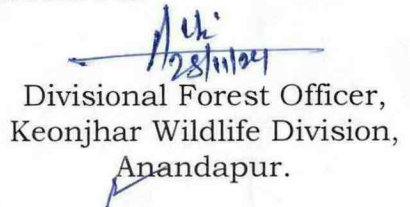 28/11/24
Divisional Forest Officer,
Keonjhar Wildlife Division,
Anandapur.